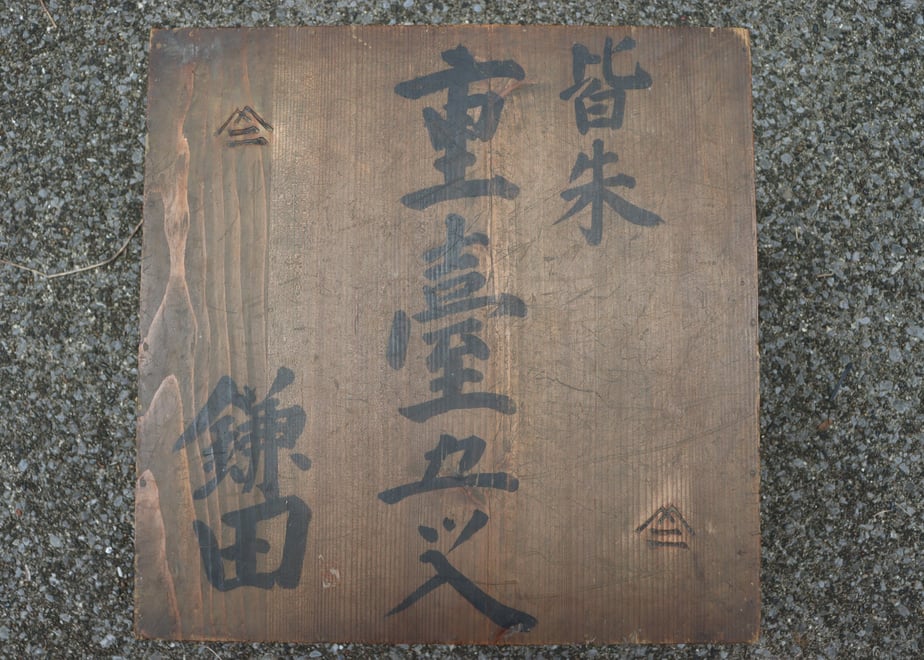 皆朱
重臺五ツ入
鎌田